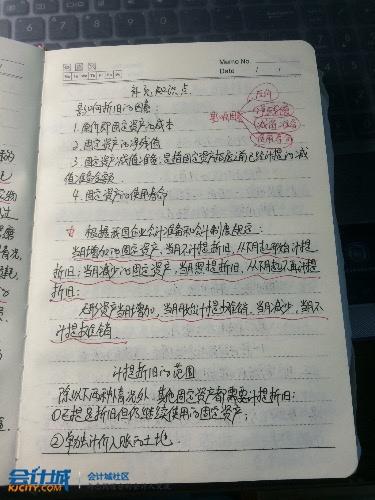 Memo No.
Date / /
补充知识点
影响折旧的因素:
1. 原价即固定资产的成本
2. 固定资产的净残值
3. 固定资产减值准备:是指固定资产折旧之前已经计提的减
值准备金额
4. 固定资产的使用寿命
影响因素
原价
净残值
减值准备
使用寿命
根据我国企业会计准则和会计制度规定:
当月增加的固定资产,当月不计提折旧,从下月起开始计提
折旧;当月减少的固定资产,当月照提折旧,从下月起不再计提
折旧;
无形资产当月增加,当月开始计提摊销,当月减少,当月不
计提摊销
计提折旧的范围
除以下两种情况外,其他固定资产都需要计提折旧:
①已提足折旧但仍继续使用的固定资产;
②单独计价入账的土地.
会计城
KJCITY.COM
会计城社区